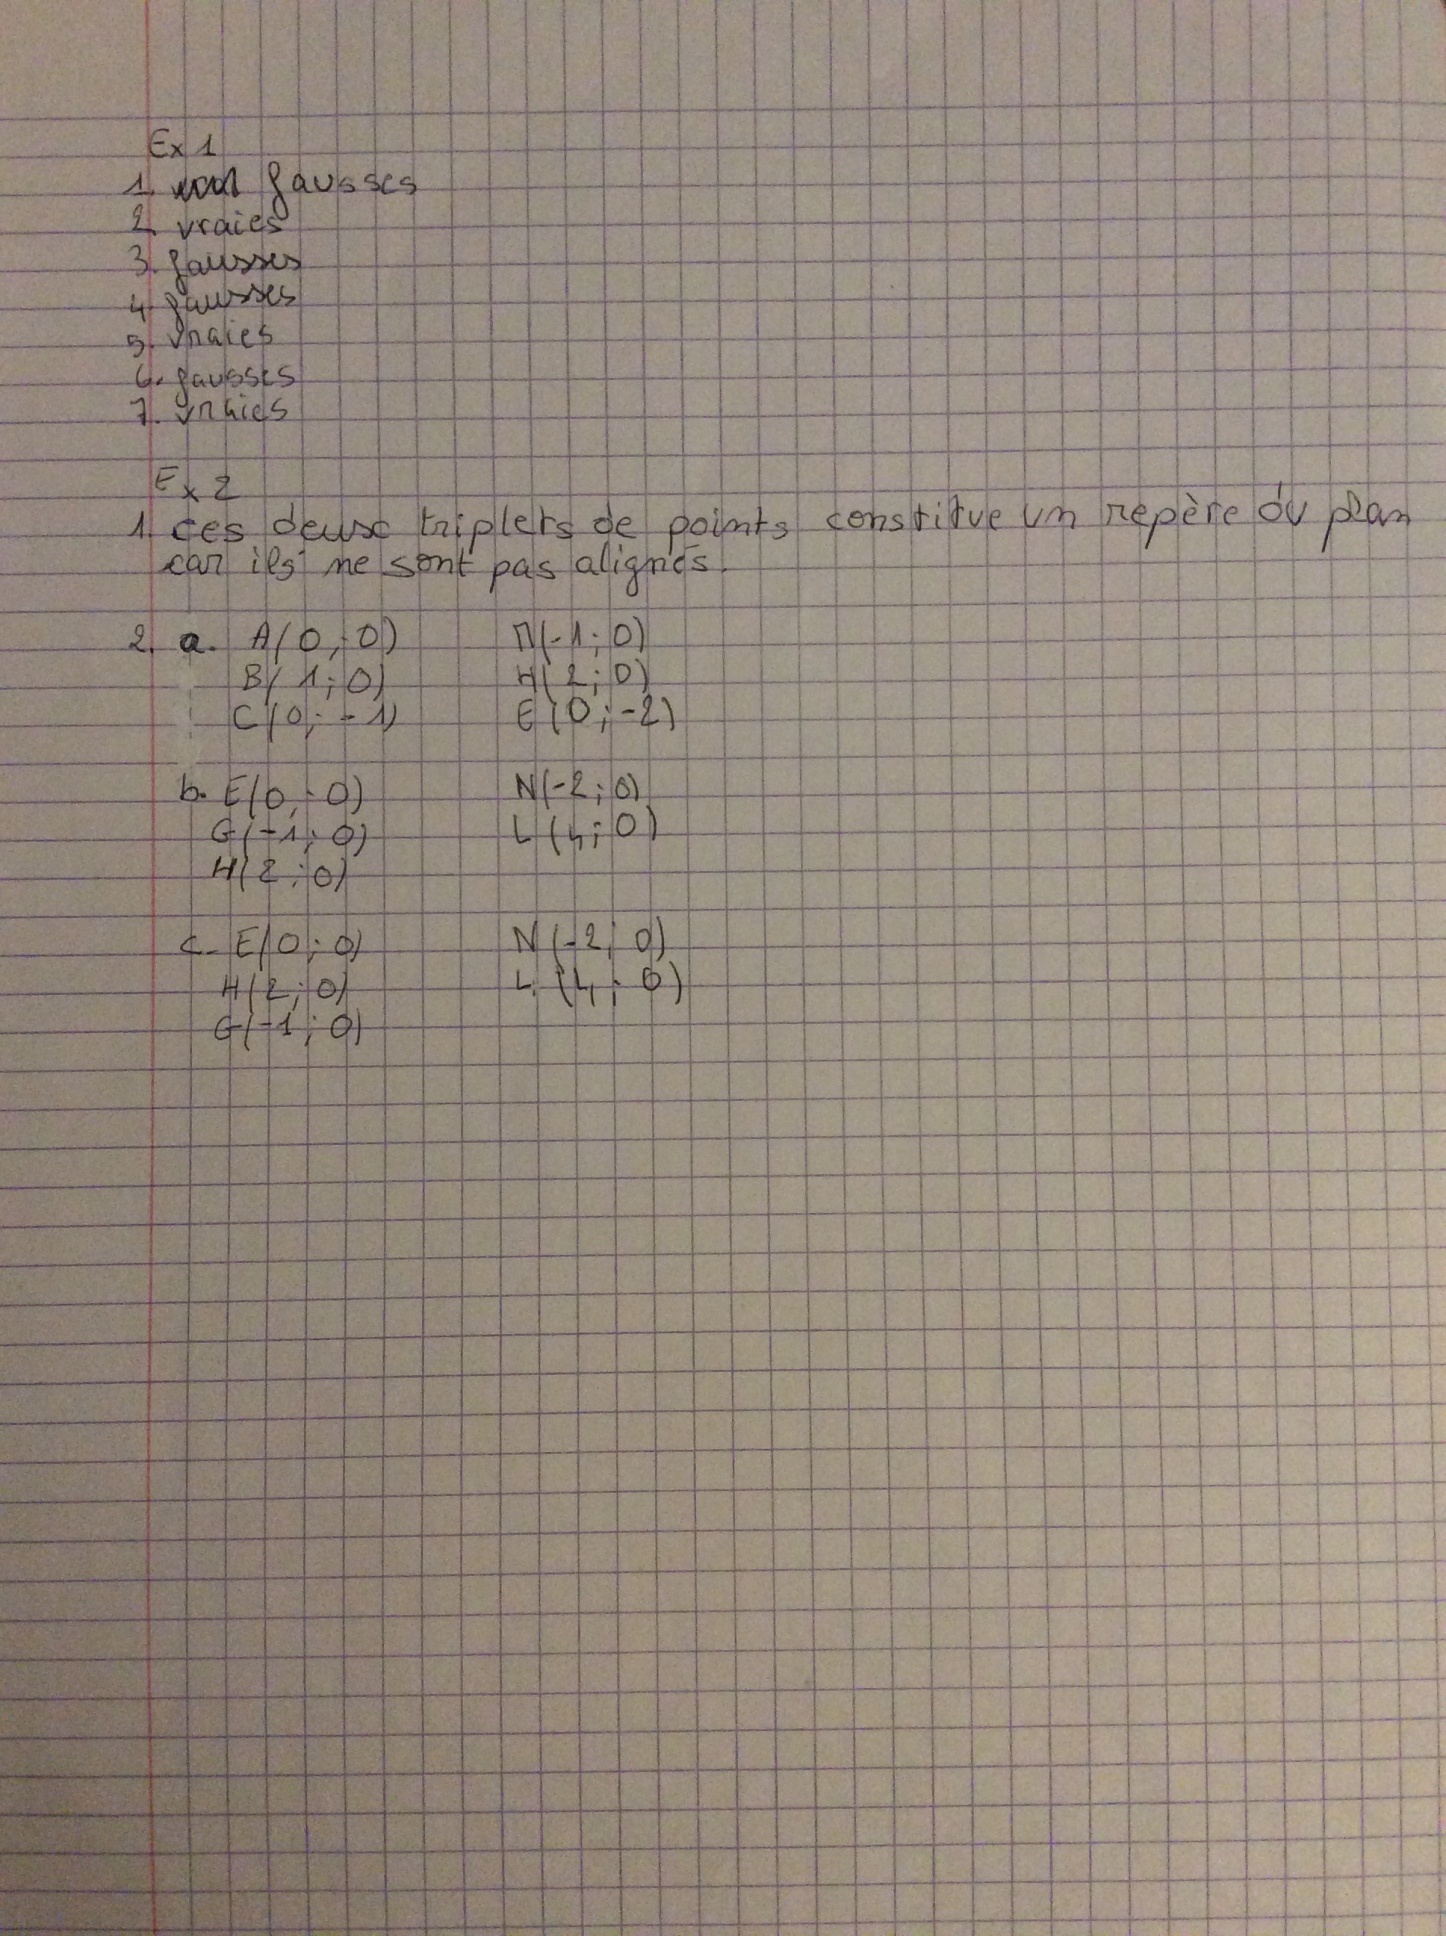 Ex 1
1. fausses
2. vraies
3. fausses
4. fausses
5. vraies
6. fausses
7. vraies
Ex 2
1. ces deux triplets de points constitue un repère du plan
car ils ne sont pas alignés.
2. a. A(0;0) M(-1;0)
B(1;0) H(2;0)
C(0;-1) E(0;-2)
b. E(0;0) N(-2;0)
G(-1;0) L(4;0)
H(2;0)
c. E(0;0) N(-2;0)
H(2;0) L(4;0)
G(-1;0)